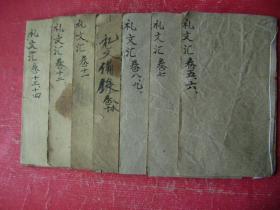 礼文汇 卷五、六
礼文汇 卷七
礼文汇 卷八、九
礼文备录
礼文汇 卷十一
礼文汇 卷十二
礼文汇 卷十三、十四